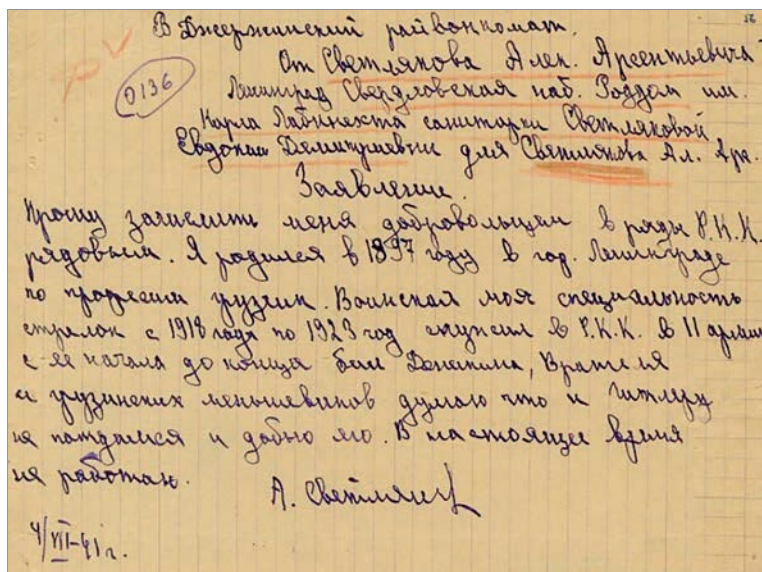 В Джержинский райвонкомат.
От Светлякова Алек. Арсентьевича
Ленинград Свердловская наб. Роддом им.
0136
Карла Либкнехта санитарки Светляковой
Евдокии Дмитриевны для Светлякова Ал. Арс.
Заявление.
Прошу зачислить меня добровольцем в ряды Р.К.К.
рядовым. Я родился в 1897 году в гор. Ленинграде
по професии грузчик. Воинская моя специальность
стрелок с 1918 года по 1923 год служил в Р.К.К. в 11 армии
с ее начала до конца бил Деникина, Врангеля
и грузинских меньшевиков думаю что и Гитлеру
не поддамся и добью его. В настоящее время
не работаю.
А. Светляков
4/VII-41 г.